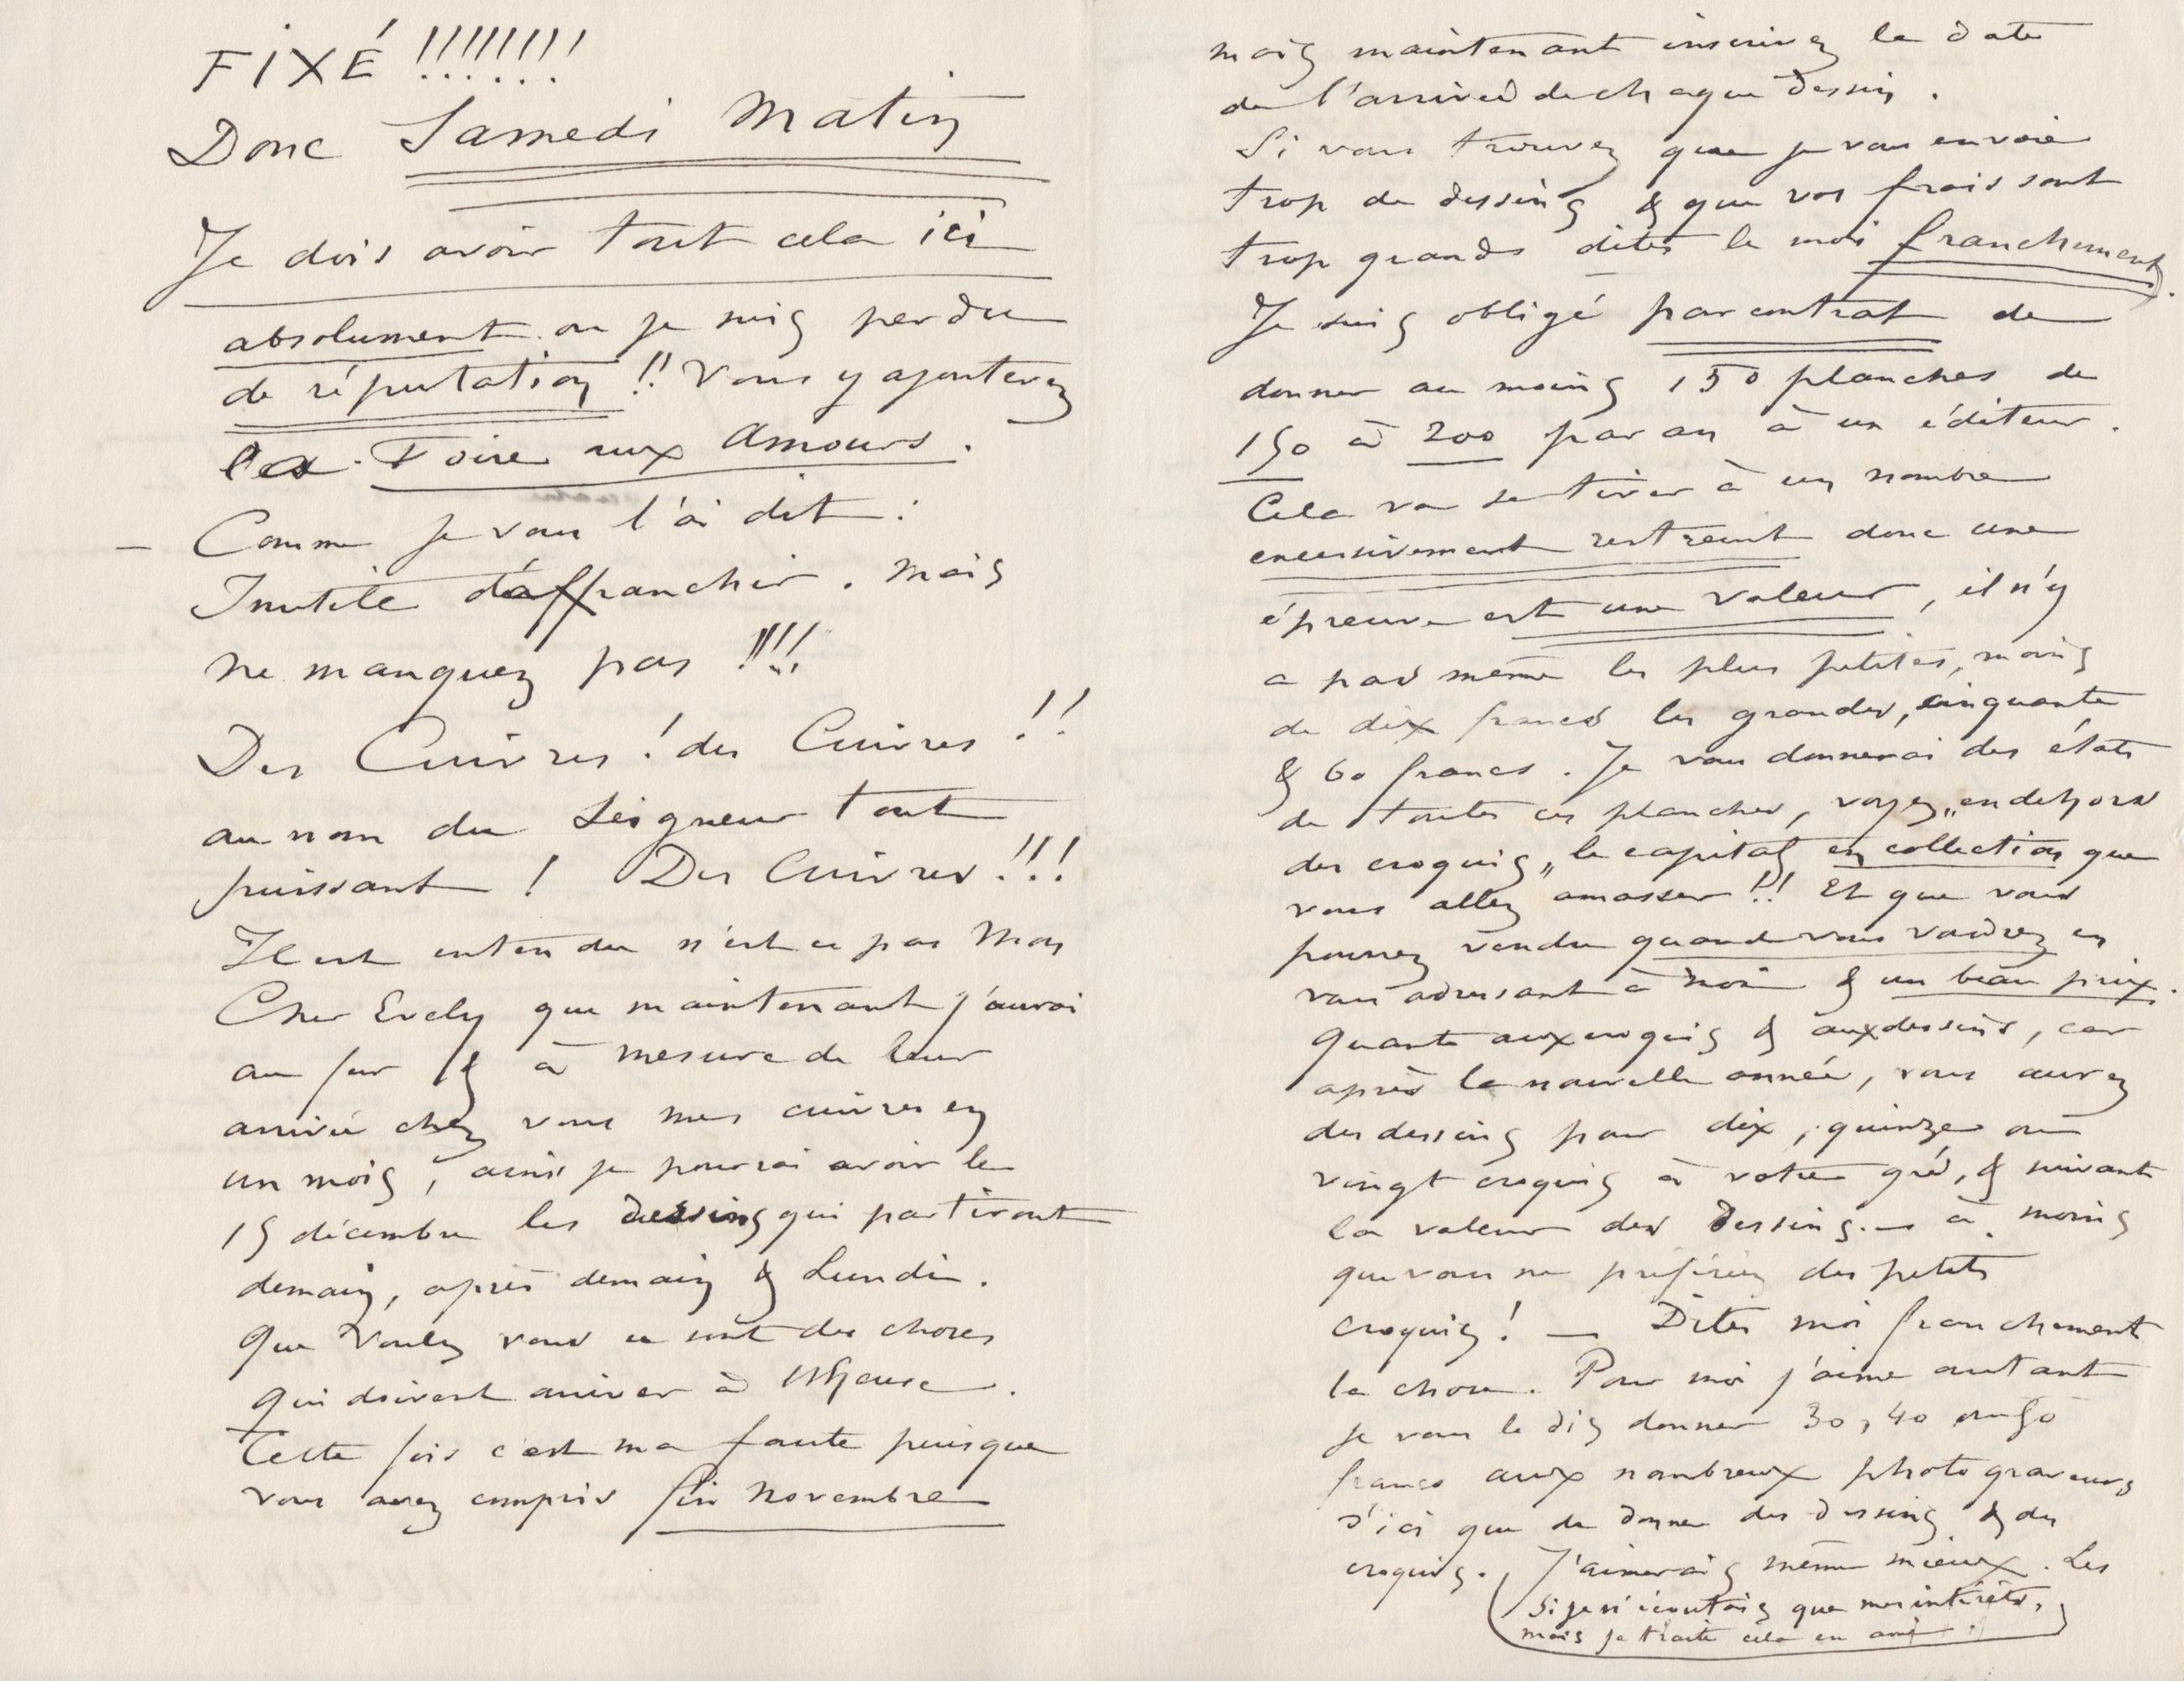 FIXÉ !!!!!!!!
Donc Samedi Matin
Je dois avoir tout cela ici
absolument ou je suis perdu
de réputation !! Vous y ajouterez
la Foire aux Amours.
— Comme je vous l'ai dit :
Inutile d'affranchir. Mais
ne manquez pas !!!!
Des Cuivres ! des Cuivres !!
au nom du Seigneur tout
puissant ! Des Cuivres !!!
Il est entendu n'est ce pas Mon
Cher Evely que maintenant j'aurai
au fur & à mesure de leur
arrivée chez vous mes cuivres en
un mois, ainsi je pourrai avoir le
15 décembre les dessins qui partiront
demain, après demain & Lundi.
Que voulez vous ce sont des choses
qui doivent arriver à l'heure.
Cette fois c'est ma faute puisque
vous avez compris fin novembre
mais maintenant inscrivez la date
de l'arrivée de chaque dessin.
Si vous trouvez que je vous envoie
trop de dessins & que vos frais sont
trop grands dites le moi franchement.
Je suis obligé par contrat de
donner au moins 150 planches de
150 à 200 par an à un éditeur.
Cela va se tirer à un nombre
excessivement restreint donc une
épreuve est une valeur, il n'y
a pas même les plus petites, moins
de dix francs les grandes, cinquante
& 60 francs. Je vous donnerai des états
de toutes ces planches, voyez „en dehors
des croquis„ le capital en collection que
vous allez amasser !!! Et que vous
pourrez vendre quand vous voudrez en
vous adressant à moi & un beau prix.
Quant aux croquis & aux dessins, car
après la nouvelle année, vous aurez
des dessins pour dix, quinze ou
vingt croquis à votre gré, & suivant
la valeur des dessins. — à moins
que vous ne préfériez des petits
croquis ! — Dites moi franchement
la chose. Pour moi j'aime autant
je vous le dis donner 30, 40 ou 50
francs aux nombreux photograveurs
d'ici que de donner des dessins & des
croquis. J'aimerais même mieux. Les
Si je n'écoutais que mes intérêts,
mais je traite cela en ami.